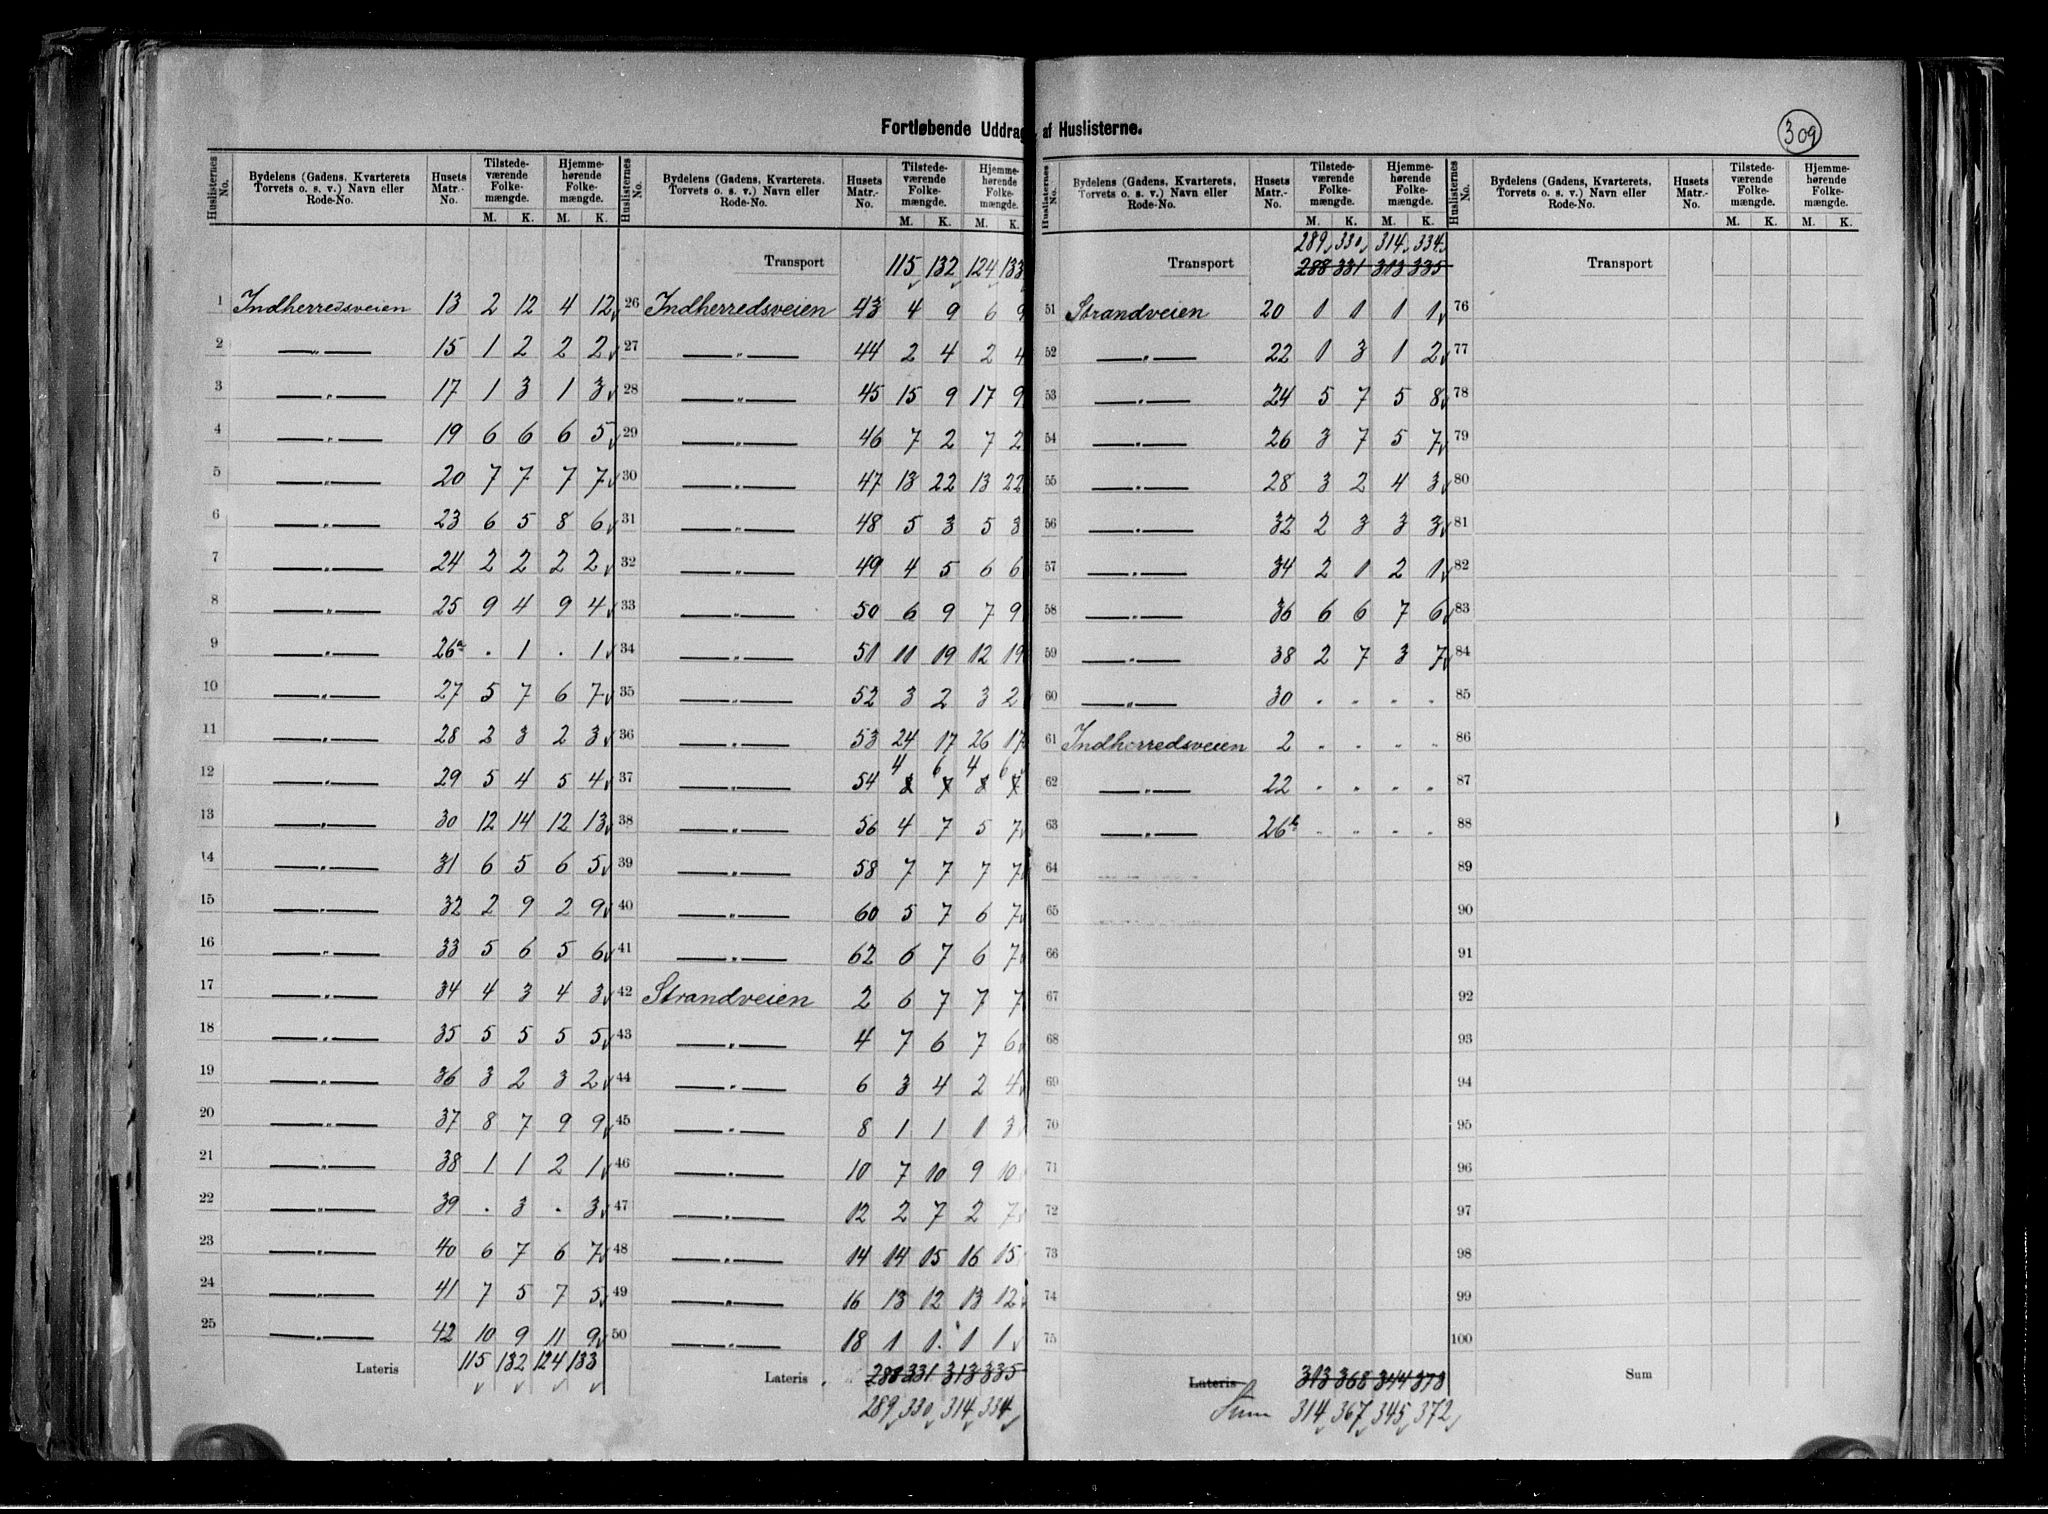 Fortløbende Uddrag af Huslisterne.
309
Huslisternes No. | Bydelens (Gadens, Kvarterets, Torvets o. s. v.) Navn eller Rode-No. | Husets Matr.-No. | Tilstedeværende Folkemængde. M. K. | Hjemmehørende Folkemængde. M. K.
1 Indherredsveien 13 2 12 4 12
2 —„— 15 1 2 2 2
3 —„— 17 1 3 1 3
4 —„— 19 6 6 6 5
5 —„— 20 7 7 7 7
6 —„— 23 6 5 8 6
7 —„— 24 2 2 2 2
8 —„— 25 9 4 9 4
9 —„— 26a . 1 . 1
10 —„— 27 5 7 6 7
11 —„— 28 2 3 2 3
12 —„— 29 5 4 5 4
13 —„— 30 12 14 12 13
14 —„— 31 6 5 6 5
15 —„— 32 2 9 2 9
16 —„— 33 5 6 5 6
17 —„— 34 4 3 4 3
18 —„— 35 5 5 5 5
19 —„— 36 3 2 3 2
20 —„— 37 8 7 9 9
21 —„— 38 1 1 2 1
22 —„— 39 . 3 . 3
23 —„— 40 6 7 6 7
24 —„— 41 7 5 7 5
25 —„— 42 10 9 11 9
Lateris 115 132 124 133
Huslisternes No. | Bydelens (Gadens, Kvarterets, Torvets o. s. v.) Navn eller Rode-No. | Husets Matr.-No. | Tilstedeværende Folkemængde. M. K. | Hjemmehørende Folkemængde. M. K.
Transport 115 132 124 133
26 Indherredsveien 43 4 9 6 9
27 —„— 44 2 4 2 4
28 —„— 45 15 9 17 9
29 —„— 46 7 2 7 2
30 —„— 47 13 22 13 22
31 —„— 48 5 3 5 3
32 —„— 49 4 5 6 6
33 —„— 50 6 9 7 9
34 —„— 51 11 19 12 19
35 —„— 52 3 2 3 2
36 —„— 53 24 17 26 17
37 —„— 54 4 6 4 6
38 —„— 56 4 7 5 7
39 —„— 58 7 7 7 7
40 —„— 60 5 7 6 7
41 —„— 62 6 7 6 7
42 Strandveien 2 6 7 7 7
43 —„— 4 7 6 7 6
44 —„— 6 3 4 2 4
45 —„— 8 1 1 1 3
46 —„— 10 7 10 9 10
47 —„— 12 2 7 2 7
48 —„— 14 14 15 16 15
49 —„— 16 13 12 13 12
50 —„— 18 1 1 1 1
Lateris 288 331 313 335
289 330 314 334
Huslisternes No. | Bydelens (Gadens, Kvarterets, Torvets o. s. v.) Navn eller Rode-No. | Husets Matr.-No. | Tilstedeværende Folkemængde. M. K. | Hjemmehørende Folkemængde. M. K.
289 330 314 334
Transport 288 331 313 335
51 Strandveien 20 1 1 1 1
52 —„— 22 1 3 1 2
53 —„— 24 5 7 5 8
54 —„— 26 3 7 5 7
55 —„— 28 3 2 4 3
56 —„— 32 2 3 3 3
57 —„— 34 2 1 2 1
58 —„— 36 6 6 7 6
59 —„— 38 2 7 3 7
60 —„— 30 „ „ „ „
61 Indherredsveien 2 „ „ „ „
62 —„— 22 „ „ „ „
63 —„— 26b „ „ „ „
64
65
66
67
68
69
70
71
72
73
74
75
Lateris 313 368 344 373
Sum 314 367 345 372
Huslisternes No. | Bydelens (Gadens, Kvarterets, Torvets o. s. v.) Navn eller Rode-No. | Husets Matr.-No. | Tilstedeværende Folkemængde. M. K. | Hjemmehørende Folkemængde. M. K.
Transport
76
77
78
79
80
81
82
83
84
85
86
87
88
89
90
91
92
93
94
95
96
97
98
99
100
Sum